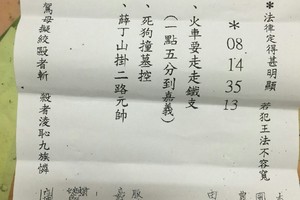 ＊法律定得甚明顯　若犯王法不容寬
＊08.14.35
13
、火車要走走鐵支
（一點五分到嘉義）
、死狗撞墓控
、薛丁山掛二路元帥
駕母擬絞毆者斬　殺者淩恥九族憐